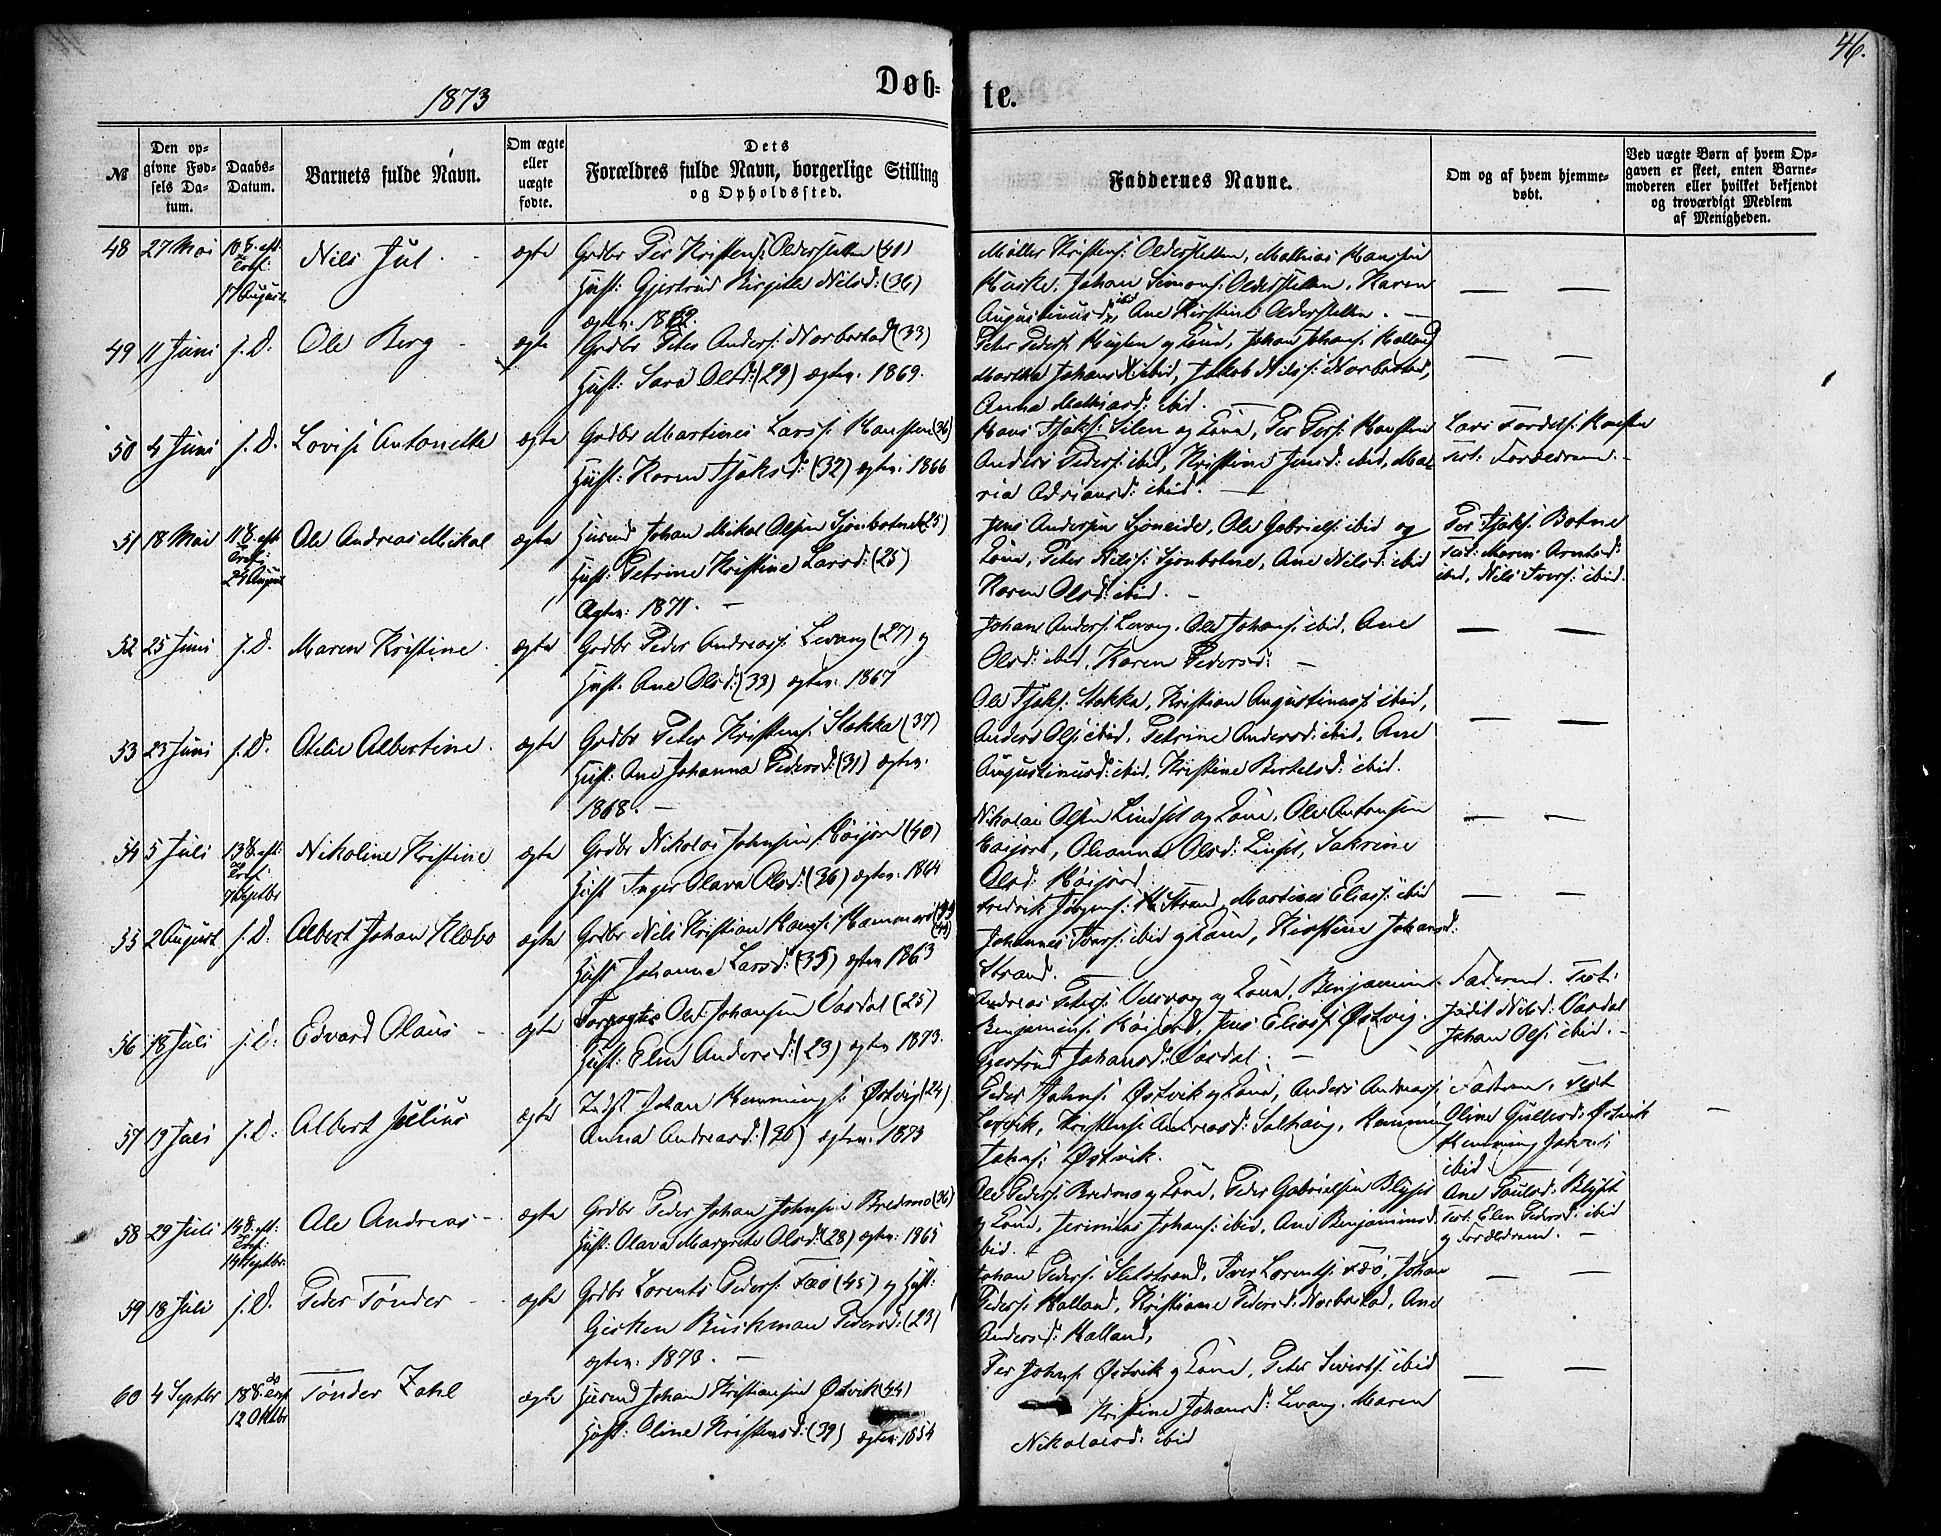 46.
1873
Døb-
te.
№
Den op-
givne Fød-
sels Da-
tum.
Daabs-
Datum.
Barnets fulde Navn.
Om ægte
eller
uægte
fødte.
Dets
Forældres fulde Navn, borgerlige Stilling
og Opholdssted.
Faddernes Navne.
Om og af hvem hjemme-
døbt.
Ved uægte Børn af hvem Op-
gaven er skeet, enten Barne-
moderen eller hvilket bekjendt
og troværdigt Medlem
af Menigheden.
48 27 Mai 10 S. eft.
Tref:
17 August
Nils Jul ægte
Grdbr Per Kristens: Olderskellen (41)
Hust: Gjertrud Birgitte Nilsd: (36)
ægtev:
Møller Kristens: Olderskellen, Mathias Hanssen
Johan Simons: Olderskellen, Karen
Augustinusd: Ane Kirstine Olderskellen. —
49 11 Juni s. D. Ole Berg ægte
Grdbr Peter Anders: Norbostad (33)
Hust: Sara Olsd: (29) ægtev. 1869.
Peter Peders: og Kone, Johan Johans:
Johansd: ibid, Jakob Nils: Norbostad,
Anna Mathiasd: ibid. —
50 4 Juni s. D. Lovise Antonette ægte
Grdbr Martines Lars: (36)
Hust: Karen Isaksd: (32) ægtev: 1866
Hans Isaks: Silen og Kone, Per Pers:
Anders Peders: ibid, Kristine Jensd: ibid, Ma-
ria Adriansd: ibid. —
Lars
Test: Forældrene. —
51 18 Mai 11 S. eft
Tref:
24 August
Ole Andreas Mikal ægte
Husmd Johan Mikal Olsen Sjonbotnet (25)
Hust: Petrine Kristine Larsd: (25)
Ægtev: 1871. —
Jens Andersen Sjoneide, Ole Gabriels: ibid og
Kone, Peter Nils: Sjonbotne, Ane Nilsd: ibid
Karen Olsd: ibid. —
Per Isaks: Botne
Test: Maren Arntsd:
ibid, Nils Ivers: ibid.
52 25 Juni s. D. Maren Kristine ægte
Grdbr Peder Andreas: Levang (27) og
Hust: Ane Olsd: (33) ægtev. 1867
Johan Anders: Levang, Ole Johans: ibid, Ane
Olsd: ibid, Karen Pedersd: —
53 23 Juni s. D. Otelie Albertine ægte
Grdbr Peter Kristens: Stokka (37)
Hust: Ane Johanna Pedersd: (31) ægtev.
1868. —
Ole Isaks: Stokka, Kristian Augustinuss: ibid,
Anders Ols: ibid, Petrine Andersd: ibid, Ane
Augustinusd: ibid, Kristine Bertelsd: ibid.
54 5 Juli 13 S. eft:
Tref:
7 Septbr
Nikoline Kristine ægte
Grdbr Nikolai Johnsen Høijord (40)
Hust Inger Olava Olsd: (36) ægtev. 1864
Nikolai Olsen Lindset og Kone, Ole Antonsen
Høijord, Olsd: Linset, Sakrine
Olsd: Høijord.
55 2 August s. D. Albert Johan Klæbo ægte
Grdbr Nils Kristian Hans:
Hust Johanna Larsd: (35) ægtev 1863
Fredrik Jørgens: Strand, Martines Elias: ibid
Johannes Ivers: ibid og Kone, Kirstine Johansd:
Strand.
56 18 Juli s. D: Edvard Olaus ægte
Ole Johansen Vasdal (25)
Hust: Elen Andersd: (23) ægtev 1873.
Andreas Peters: og Kone, Benjamin
Benjamins: Høijord, Jens Elias: Østvig.
Gjertrud Johansd: Vasdal. —
Faderen. Test:
Nilsd: Vasdal
Johan Ols: ibid. —
57 19 Juli s. D: Albert Julius ægte
Indst Johan Hemmings: Østvig (24)
Anna Andreasd: (20) ægtev. 1873
Peder Johns: Østvik og Kone, Anders Andreas:
Andreasd: Solhaug, Hemming
Johns: Østvik.
Faderen, Test
Oline Østvik
Hemming Johns:
ibid.
58 29 Juli 14 S. eft:
Tref:
14 Septbr.
Ole Andreas ægte
Grdbr Peder Johan Johnsen Bredmo (36)
Hust: Olava Margrete Olsd: (28) ægtev: 1865
Ole Peders: Bredmo og Kone, Peder Gabrielsen
og Kone, Jeremias Johans: ibid, Ane Benjaminsd:
ibid. —
Ane Paulsd:
Test: Elen Pedersd: ibid
og Forældrene. —
59 18 Juli s. D. Peder Tønder ægte
Grdbr Lorents Peders: Fæø (45) og Hust:
Gisken Buskman Pedersd: (23)
ægtev. 1873. —
Johan Peders: Slotstrand, Iver Lorents: Fæø, Johan
Peders: Kristiane Pedersd: Norbostad, Ane
Andersd:
60 4 Septbr 18 S. e.
12 Oktbr
Tønder Zahl ægte
Husmd Johan Kristiansen Østvik (44)
Hust: Oline Kristensd: (39) ægtev: 1854
Per Johns: Østvik og Kone, Peter Siverts: ibid
Kristine Johansd: Levang, Maren
Nikolaisd: ibid